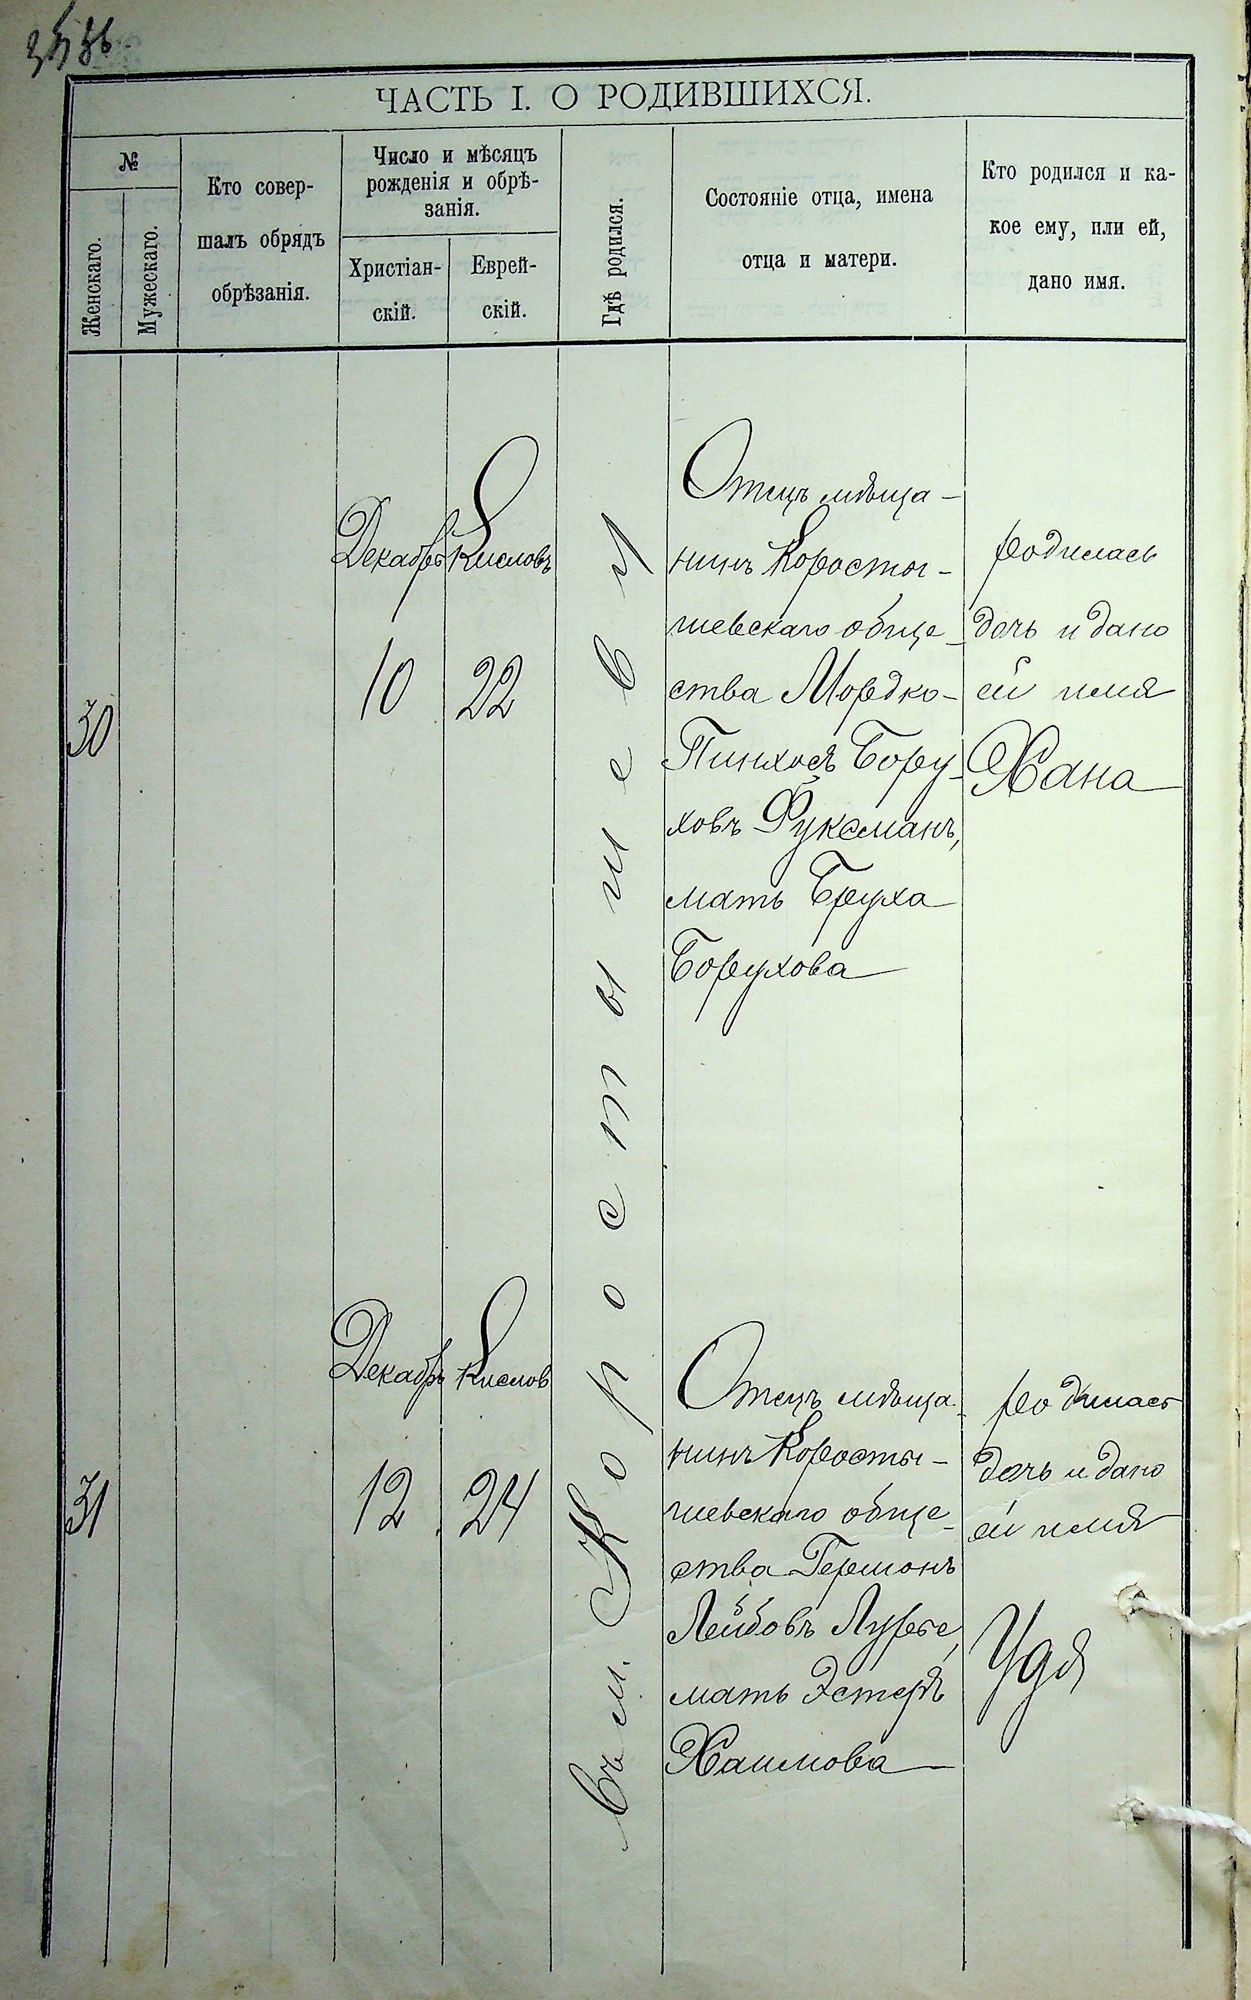 ЧАСТЬ I. О РОДИВШИХСЯ.
№
Женскаго.
Мужескаго.
Кто совер-
шалъ обрядъ
обрѣзанія.
Число и мѣсяцъ
рожденія и обрѣ-
занія.
Христіан-
скій.
Еврей-
скій.
Гдѣ родился.
Состояніе отца, имена
отца и матери.
Кто родился и ка-
кое ему, или ей,
дано имя.
30
Декабрь
10
Кисловъ
22
Въ м. Коростышевѣ
Отецъ мѣща-
нинъ Косты-
шевскаго обще-
ства Мордко-
Пинхосъ Бору-
ховъ Фуксманъ,
мать Бруха
Борухова
родилась
дочь и дано
ей имя
Хана
31
Декабрь
12
Кислов
24
Отецъ мѣща-
нинъ Коросты-
шевскаго обще-
ства Гершонъ
Лейбовъ Лурье,
мать Эстеръ
Хаимова
родилась
дочь и дано
ей имя
Удя